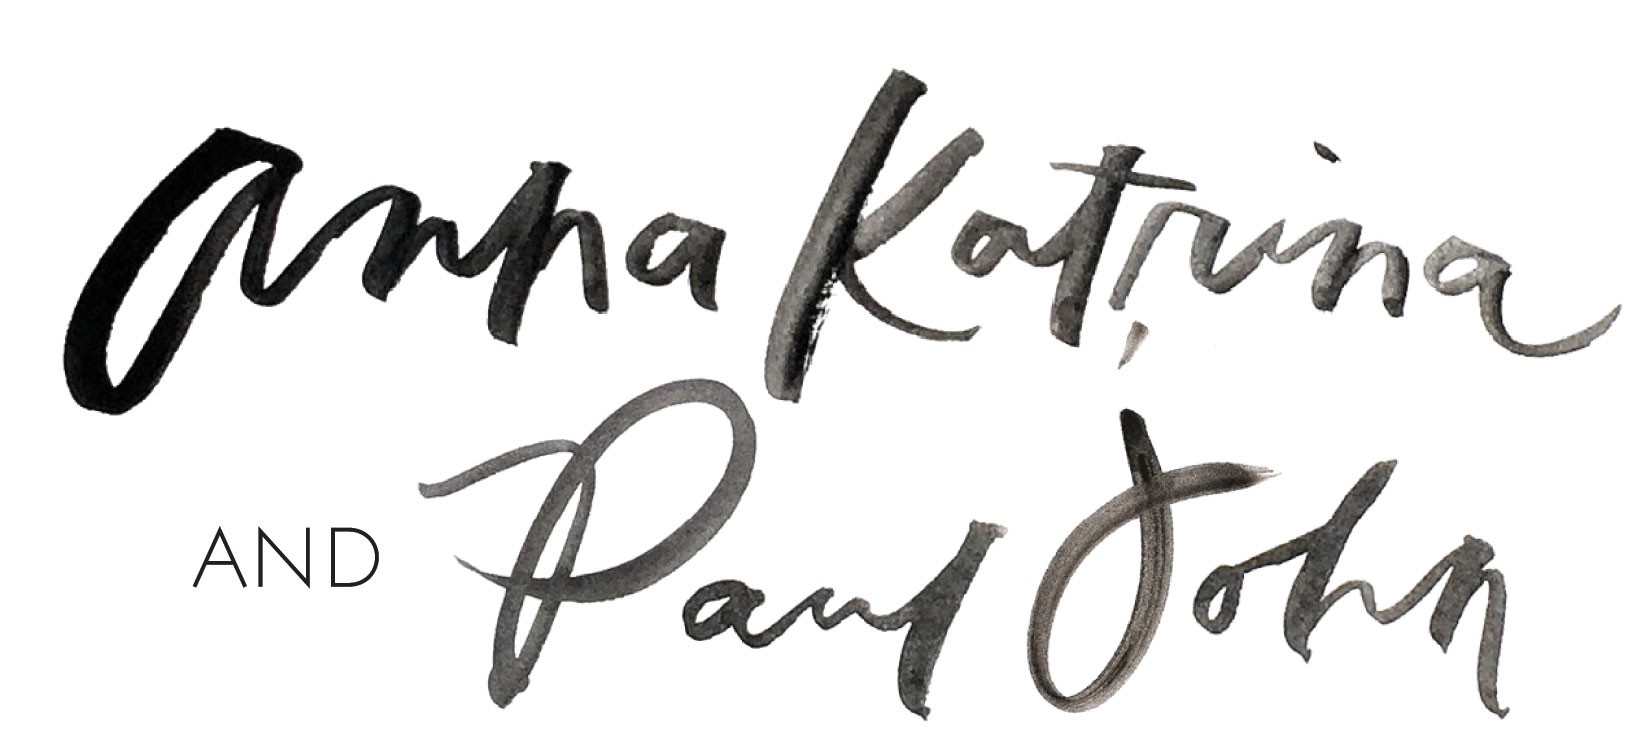 anna Katrina
AND Paul John